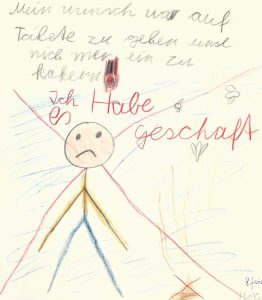 Mein wunsch war auf
zu gehen und
nich mer ein zu
kakern
Ich Habe
es geschaft